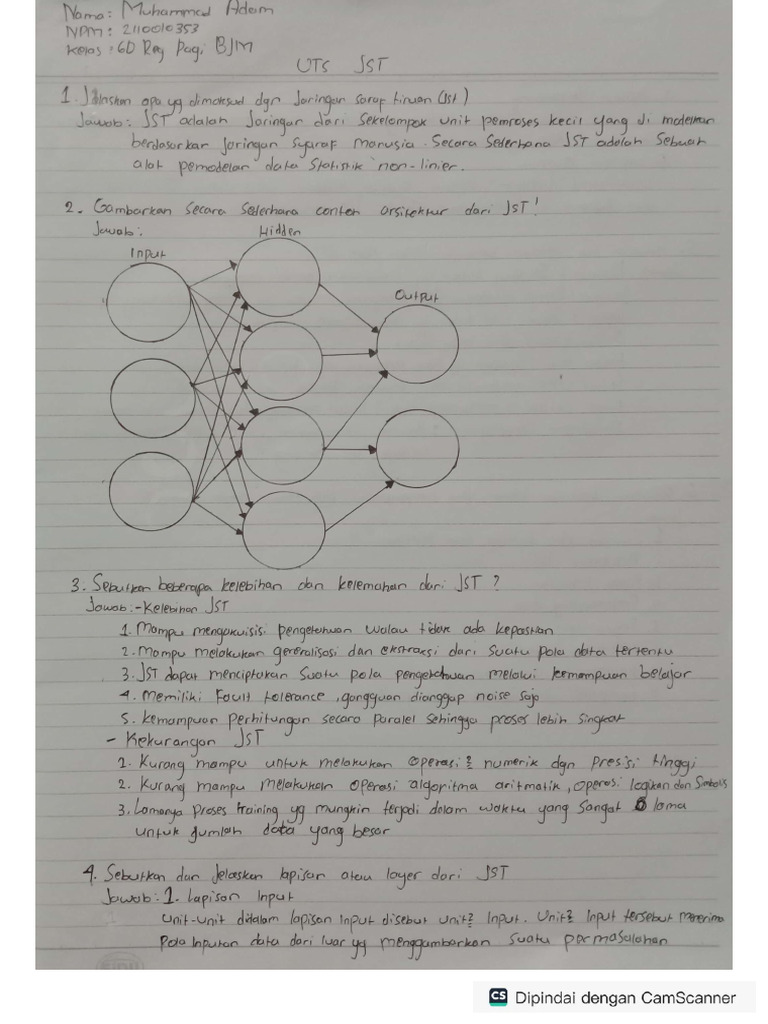 Nama: Muhammad Adam
NPM: 2110010353
Kelas: 6D Reg Pagi BJM
UTS JST
1. Jelaskan apa yg dimaksud dgn Jaringan saraf tiruan (Jst)
Jawab: JST adalah Jaringan dari Sekelompok unit pemroses kecil yang di modelkan
berdasarkan Jaringan Syaraf Manusia. Secara Sederhana JST adalah Sebuah
alat pemodelan data Statistik non-linier.
2. Gambarkan Secara Sederhana contoh arsitektur dari JST!
Jawab:
Hidden
Input
Output
3. Sebutkan beberapa kelebihan dan kelemahan dari JST ?
Jawab: - Kelebihan JST
1. Mampu mengakuisisi pengetahuan walau tidak ada kepastian
2. Mampu melakukan generalisasi dan ekstraksi dari Suatu pola data tertentu
3. JST dapat menciptakan Suatu pola pengetahuan melalui kemampuan belajar
4. Memiliki Fault tolerance, gangguan dianggap noise saja
5. kemampuan perhitungan secara paralel sehingga proses lebih singkat
- Kekurangan JST
1. Kurang mampu untuk melakukan operasi2 numerik dgn presisi tinggi
2. Kurang mampu melakukan operasi algoritma aritmatik, operasi logika dan Simbolis
3. Lamanya proses training yg mungkin terjadi dalam waktu yang Sangat lama
untuk Jumlah data yang besar
4. Sebutkan dan Jelaskan lapisan atau layer dari JST
Jawab: 1. Lapisan Input
Unit-unit didalam lapisan Input disebut unit2 Input. Unit2 Input tersebut menerima
Pola Inputan data dari luar yg menggambarkan Suatu permasalahan
CS Dipindai dengan CamScanner